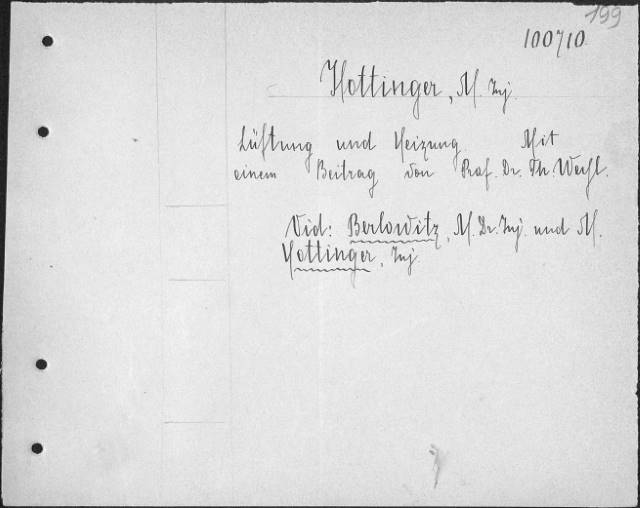 199
100710
Hottinger, M. Inj.
Lüftung und Heizung. Mit
einem Beitrag von Prof. Dr. Th. Weyl.
Vid: Berlowitz, M. Dr. Inj. und M.
Hottinger, Inj.